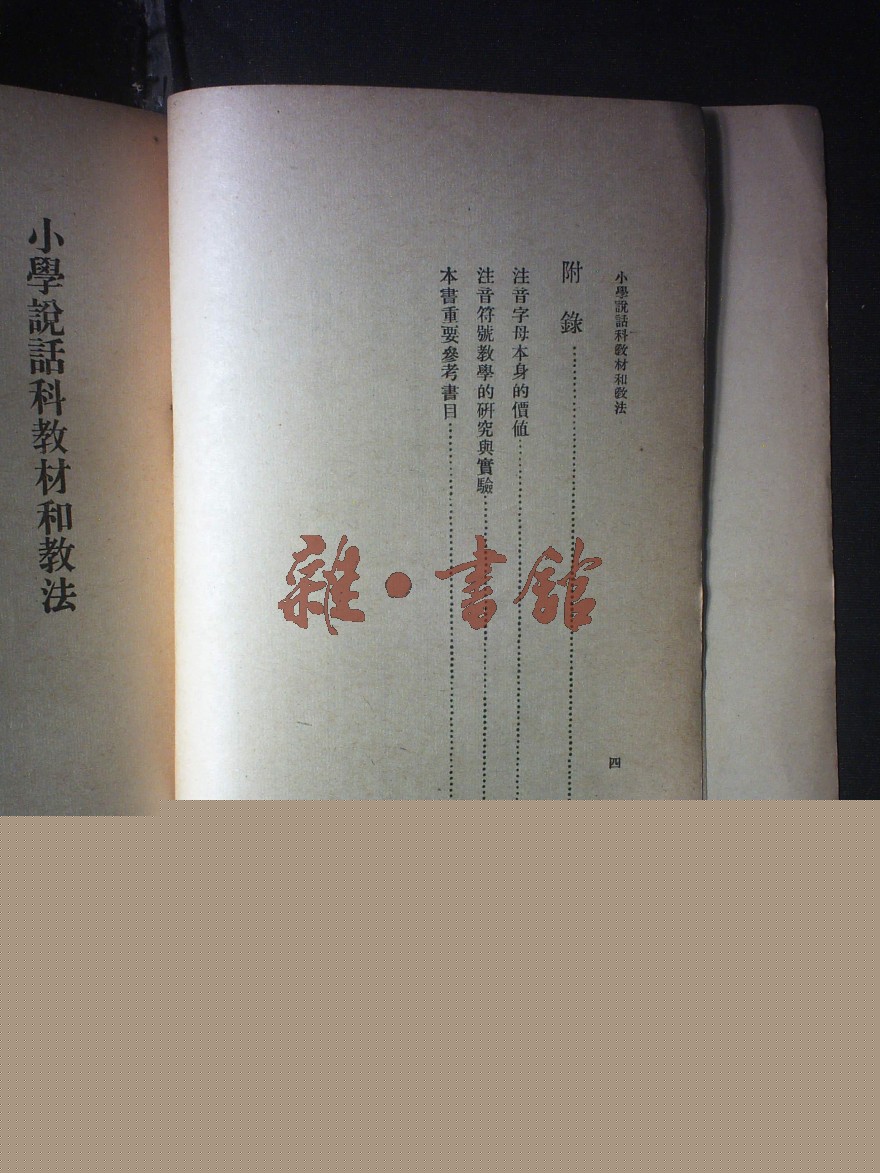 小學說話科教材和教法
四
附錄
注音字母本身的價值
注音符號教學的研究與實驗
本書重要參考書目
雜·書館
小學說話科教材和教法